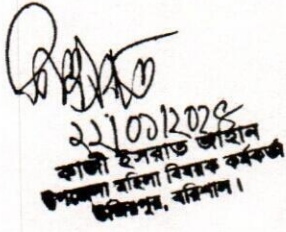 ২২/০১/২০২৪
কাজী ইসরাত জাহান
উপজেলা মহিলা বিষয়ক কর্মকর্তা
উজিরপুর, বরিশাল।